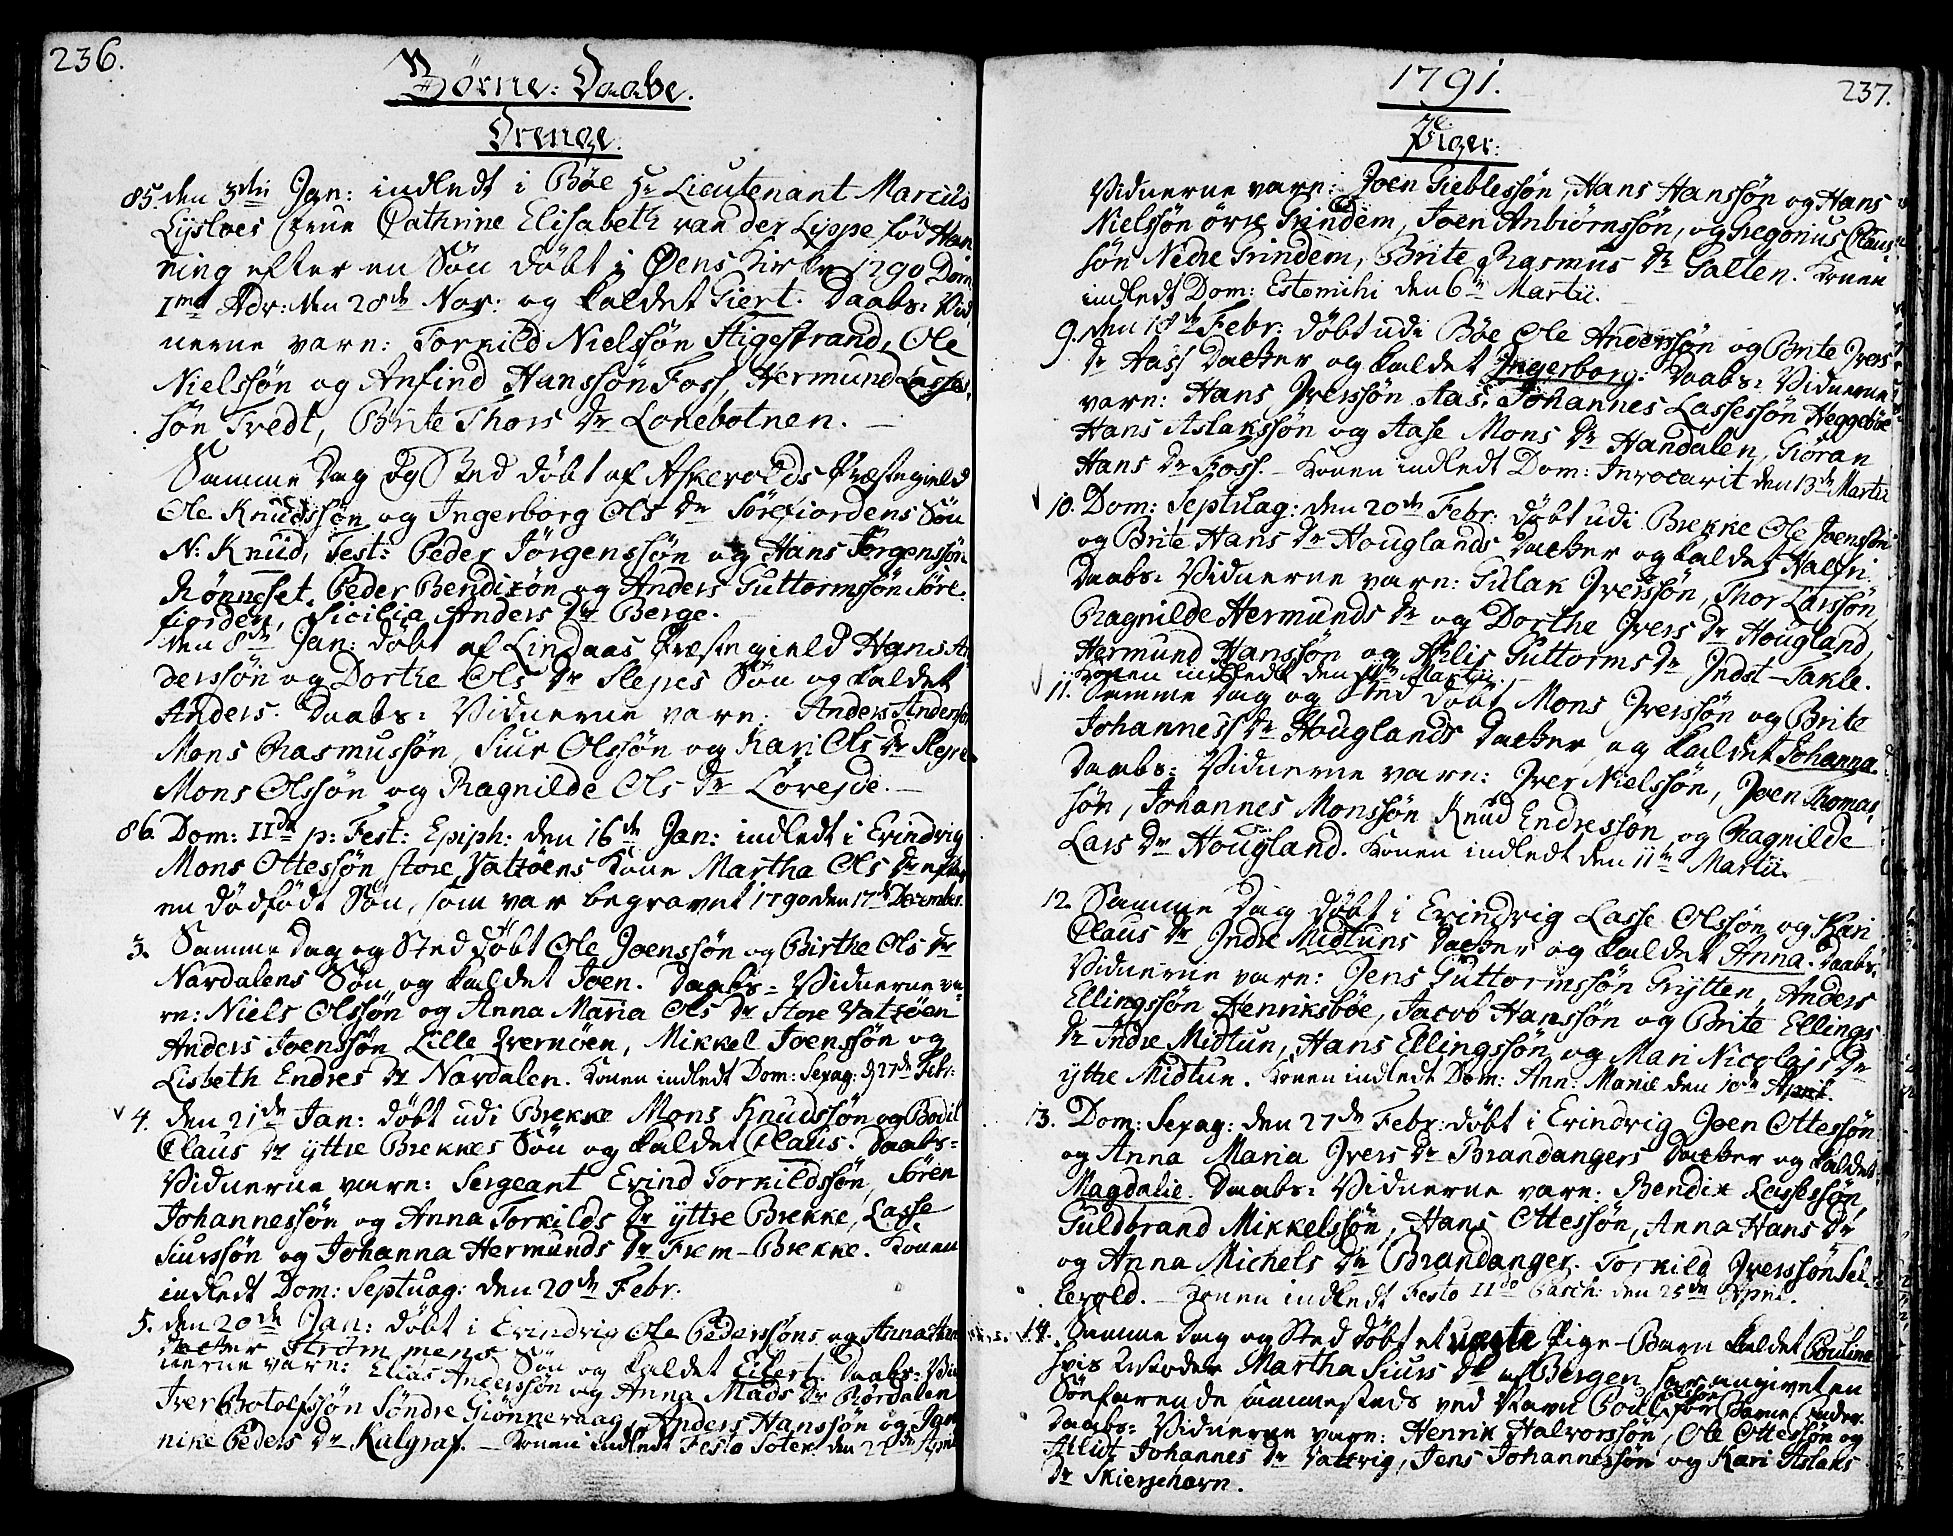 236.
Børne: Daabe.
Drenge.
85. den 3die Jan: indledt i Bøe Hr Lieutenant Marcus
Lysloes Frue Cathrine Elisabeth van der Lippe fød Han
ning efter en Søn døbt i Øens Kirke 1790 Dom
Ima Adv: den 28de Nov: og kaldet Giert. Daabs: Vid
nerne vare: Torkild Nielssøn Stigestrand, Ole
Nielssøn og Anfind Hanssøn Foss, Hermund Lasses
søn Tredt, Brite Thors Dr Lonebotnen. —
Samme Dag og Sted døbt af Askevolds Præstegield
Ole Knudssøn og Ingerborg Ols Dr Sørefiordens Søn
N: Knud, Test: Peder Jørgenssøn og Hans Jørgenssøn
Rønneset, Peder Bendixøn og Anders Guttormssøn Søre
fiorden, Sicilia Anders Dr Berge.
den 8de Jan: døbt af Lindaas Præstegield Hans An
derssøn og Dorthe Ols Dr Slepes Søn og kaldet
Anders. Daabs: Vidnerne vare: Anders Anderssøn
Mons Rasmussøn, Siur Olssøn og Kari Ols Dr Slepe
Mons Olssøn og Ragnilde Ols Dr —
86. Dom: IIda p: Fest: Epiph: den 16de Jan: indledt i Evindvig
Mons Ottessøn store Vatzøens Kone Martha Ols Dr efter
en dødfødt Søn, som var begravet 1790 den 17de December.
3. Samme Dag og Sted døbt Ole Joenssøn og Birthe Ols Dr
Nordalens Søn og kaldet Joen. Daabs: Vidnerne va
re: Niels Olssøn og Anna Maria Ols Dr Store Vatzøen
Anders Joenssøn Lille Hvernøen, Mikkel Joenssøn og
Lisbeth Endres Dr Nordalen. Konen indledt Dom: Sexag: d 27de Febr:
4. den 21de Jan: døbt udi Brekke Mons Knudssøn og Bodil
Claus Dr yttre Brekkes Søn og kaldet Claus. Daabs:
Vidnerne vare: Sergeant Evind Torkildssøn, Søren
Johannessøn og Anna Torkilds Dr yttre Brekke, Lasse
Siurssøn og Johanna Hermunds Dr Frem-Brekke. Konen
indledt Dom: Septuag: den 20de Febr.
5. den 20de Jan: døbt i Evindvig Ole Pederssøns og Anna
Strømmens Søn og kaldet Eilert. Daabs: Vid
nerne vare: Elias Anderssøn og Anna Mads Dr Rørdalen
Iver Botolfssøn Søndre Giønnevaag, Anders Hanssøn og Jan
nike Peders Dr Kulgraf. — Konen indledt Festo
1791.
237.
Piger:
Vidnerne vare: Joen Gieblessøn, Hans Hanssøn og Hans
Nielssøn øvre Grindem, Joen Anbiørnssøn, og Gregorius Claus
søn Nedre Grindem, Brite Rasmus Dr Galten. Konen
indledt Dom: Estomihi den 6te Martii. —
9. den 18de Febr: døbt udi Bøe Ole Anderssøn og Brite Ivers
Dr Aass Datter og kaldet Ingerborg: Daabs: Vidnerne
vare: Hans Iverssøn Aas, Johannes Lassessøn Heggebøe
Hans Aslakssøn og Aase Mons Dr Handalen, Giøran
Hans Dr Foss. — Konen indledt Dom: Invocavit den 13de Martii
10. Dom: Septuag: den 20de Febr: døbt udi Brekke Ole Joenssøn
og Brite Hans Dr Houglands Datter og kaldet Halfri
Daabs: Vidnerne vare: Gulak Iverssøn, Thor Larssøn,
Ragnilde Hermunds Dr og Dorthe Ivers Dr Hougland,
Hermund Hanssøn og Guttorms Dr Indst-Takle.
Konen indledt den 11te Martii.
11. Samme Dag og Sted døbt Mons Iverssøn og Brite
Johannes Dr Houglands Datter og kaldet Johanna.
Daabs: Vidnerne vare: Iver Nielssøn, Joen Thomas
søn, Johannes Monssøn Knud Endressøn og Ragnilde
Lars Dr Hougland. Konen indledt den 11te Martii.
12. Samme Dag døbt i Evindvig Lasse Olssøn og Kari
Claus Dr Indre Midtuns Datter og kaldet Anna. Daabs:
Vidnerne vare: Jens Guttormssøn Grytten, Anders
Ellingssøn Henriksbøe, Jacob Hanssøn og Brite Ellings
Dr Indre Midtun, Hans Ellingssøn og Mari Nicolai Dr
yttre Midtun. Konen indledt Dom: Ann: Mariæ den 10de April.
13. Dom: Sexag: den 27de Febr: døbt i Evindvig Joen Ottessøn
og Anna Maria Ivers Dr Brandangers Datter og kaldet
Magdalie. Daabs: Vidnerne vare: Bendix Lassessøn,
Guldbrand Mikkelssøn, Hans Ottessøn, Anna Hans Dr
og Anna Michels Dr Brandanger. Torkild Iverssøn Sel
levold. — Konen indledt Festo IIdo Pasch: den 25de April.
14. Samme Dag og Sted døbt et uægte Pige-Barn kaldet Pouline
hvis Moder Martha Siurs Dr af Bergen har angivet en
Søefarende sammesteds ved Navn Poul for Barne-Fader.
Daabs: Vidnerne vare: Henrik Halvorssøn, Ole Ottessøn og
Johannes Dr Vattvig, Jens Johannessøn og Kari Aslaks
Dr Skiersehavn.